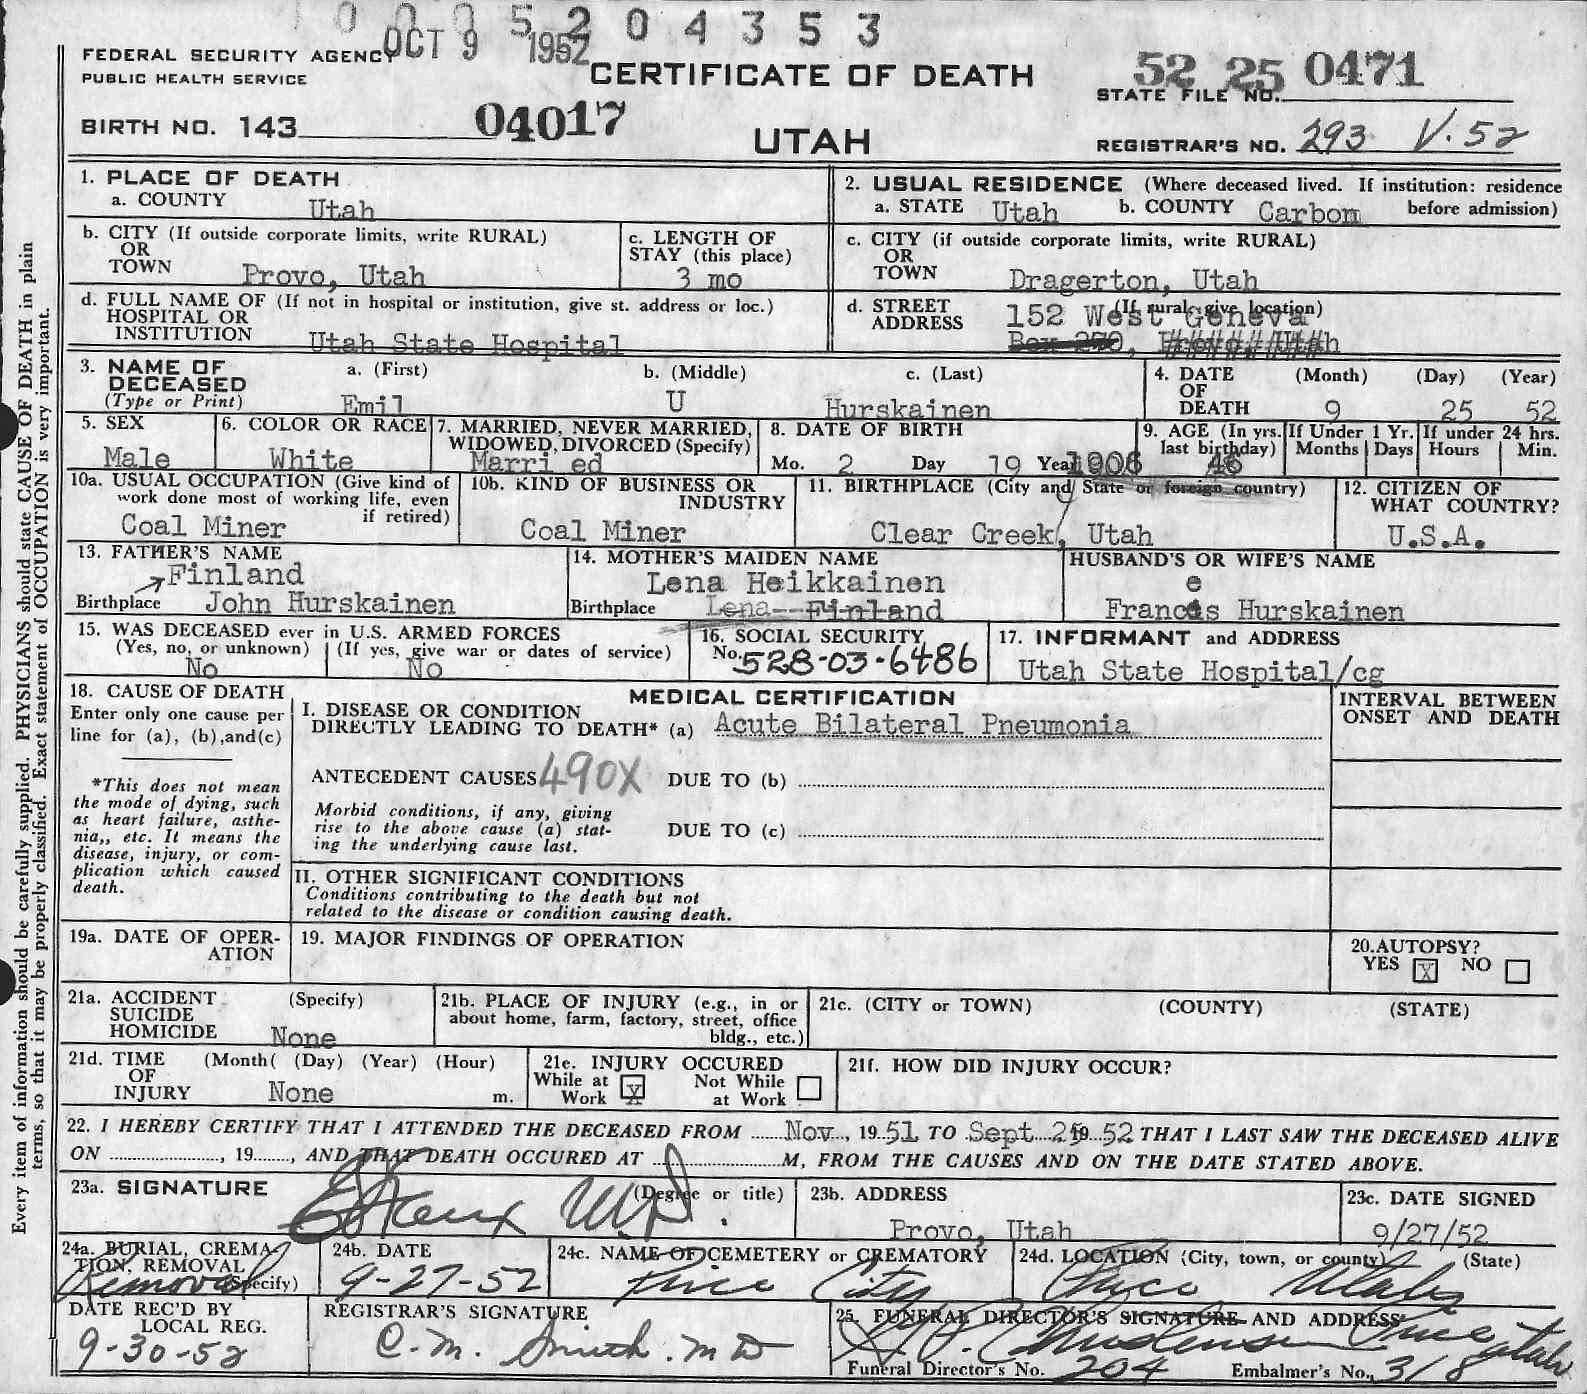 0 0 0 5 2 0 4 3 5 3
OCT 9 1952
FEDERAL SECURITY AGENCY
PUBLIC HEALTH SERVICE
CERTIFICATE OF DEATH
52 25 0471
STATE FILE NO.
BIRTH NO. 143 04017
UTAH
REGISTRAR'S NO. 293 V.52
1. PLACE OF DEATH
a. COUNTY Utah
2. USUAL RESIDENCE (Where deceased lived. If institution: residence before admission)
a. STATE Utah b. COUNTY Carbon
b. CITY (If outside corporate limits, write RURAL)
OR
TOWN Provo, Utah
c. LENGTH OF
STAY (this place)
3 mo
c. CITY (if outside corporate limits, write RURAL)
OR
TOWN Dragerton, Utah
d. FULL NAME OF (If not in hospital or institution, give st. address or loc.)
HOSPITAL OR
INSTITUTION Utah State Hospital
d. STREET (If rural give location)
ADDRESS 152 West Geneva
Box 270, Provo, Utah
3. NAME OF
DECEASED
(Type or Print)
a. (First) b. (Middle) c. (Last)
Emil U Hurskainen
4. DATE (Month) (Day) (Year)
OF
DEATH 9 25 52
5. SEX
Male
6. COLOR OR RACE
White
7. MARRIED, NEVER MARRIED,
WIDOWED, DIVORCED (Specify)
Married
8. DATE OF BIRTH
Mo. 2 Day 19 Year 1906
9. AGE (In yrs. last birthday)
46
If Under 1 Yr.
Months Days
If under 24 hrs.
Hours Min.
10a. USUAL OCCUPATION (Give kind of
work done most of working life, even
if retired)
Coal Miner
10b. KIND OF BUSINESS OR
INDUSTRY
Coal Miner
11. BIRTHPLACE (City and State or foreign country)
Clear Creek, Utah
12. CITIZEN OF
WHAT COUNTRY?
U.S.A.
13. FATHER'S NAME
Finland
Birthplace John Hurskainen
14. MOTHER'S MAIDEN NAME
Lena Heikkainen
Birthplace Lena--Finland
HUSBAND'S OR WIFE'S NAME
e
Francis Hurskainen
15. WAS DECEASED ever in U.S. ARMED FORCES
(Yes, no, or unknown) (If yes, give war or dates of service)
No No
16. SOCIAL SECURITY
No. 528-03-6486
17. INFORMANT and ADDRESS
Utah State Hospital/cg
18. CAUSE OF DEATH
Enter only one cause per
line for (a), (b),and(c)
*This does not mean
the mode of dying, such
as heart failure, asthe-
nia,, etc. It means the
disease, injury, or com-
plication which caused
death.
MEDICAL CERTIFICATION
I. DISEASE OR CONDITION
DIRECTLY LEADING TO DEATH* (a) Acute Bilateral Pneumonia
ANTECEDENT CAUSES 490X DUE TO (b)
Morbid conditions, if any, giving
rise to the above cause (a) stat-
ing the underlying cause last.
DUE TO (c)
II. OTHER SIGNIFICANT CONDITIONS
Conditions contributing to the death but not
related to the disease or condition causing death.
INTERVAL BETWEEN
ONSET AND DEATH
19a. DATE OF OPER-
ATION
19. MAJOR FINDINGS OF OPERATION
20.AUTOPSY?
YES X NO
21a. ACCIDENT (Specify)
SUICIDE
HOMICIDE None
21b. PLACE OF INJURY (e.g., in or
about home, farm, factory, street, office
bldg., etc.)
21c. (CITY or TOWN) (COUNTY) (STATE)
21d. TIME (Month( (Day) (Year) (Hour)
OF
INJURY None m.
21e. INJURY OCCURED
While at Work X Not While at Work
21f. HOW DID INJURY OCCUR?
22. I HEREBY CERTIFY THAT I ATTENDED THE DECEASED FROM Nov, 19 51 TO Sept 25 19 52 THAT I LAST SAW THE DECEASED ALIVE
ON, 19, AND THAT DEATH OCCURED AT M, FROM THE CAUSES AND ON THE DATE STATED ABOVE.
23a. SIGNATURE M.D. (Degree or title)
23b. ADDRESS
Provo, Utah
23c. DATE SIGNED
9/27/52
24a. BURIAL, CREMA-
TION, REMOVAL
(Specify)
Removal
24b. DATE
9-27-52
24c. NAME OF CEMETERY or CREMATORY
Price City
24d. LOCATION (City, town, or county) (State)
Price Utah
DATE REC'D BY
LOCAL REG.
9-30-52
REGISTRAR'S SIGNATURE
C. M. Smith. MD
25. FUNERAL DIRECTOR'S SIGNATURE AND ADDRESS
Price Utah
Funeral Director's No. 204 Embalmer's No. 318
Every item of information should be carefully supplied. PHYSICIANS should state CAUSE OF DEATH in plain
terms, so that it may be properly classified. Exact statement of OCCUPATION is very important.